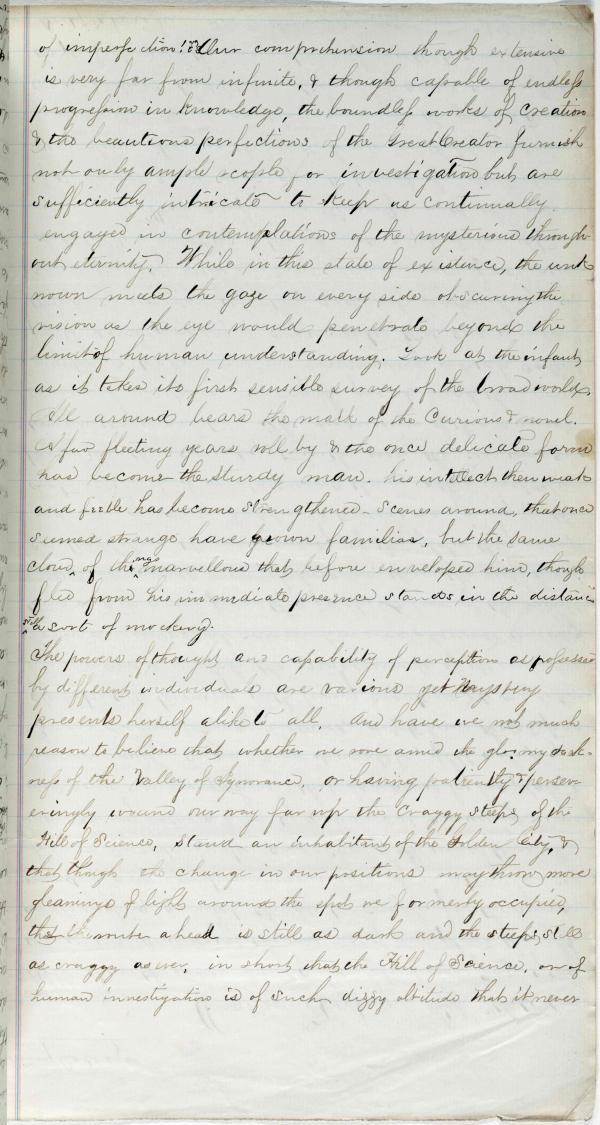 of imperfection! Our comprehension though extensive
is very far from infinite, & though capable of endless
progression in knowledge, the boundless works of Creation
& the beautious perfections of the Great Creator furnish
not only ample scople for investigation but are
sufficiently intricate to keep us continually
engaged in contemplations of the mysterious through-
out eternity. While in this state of existence, the unk
nown meets the gaze on every side obscuring the
vision as the eye would penetrate beyond the
limit of human understanding. Look at the infant
as it takes its first sensible survey of the broad world,
All around bears the mark of the Curious & novel.
A few fleeting years roll by & the once delicate form
has become the sturdy man. his intellect then weak
and feeble has become strengthened - Scenes around, that once
seemed strange have grown familiar, but the same
cloud, of the marvellous that before enveloped him, though
fled from his immediate presence stands in the distance
still a sort of mockery.
The powers of thought and capability of perception as possessed
by different individuals are various yet Mystery
presents herself alike to all. And have we not much
reason to believe that whether we rove amid the gloomy dark-
ness of the Valley of Ignorance, or having patiently & persev-
eringly wound our way far up the Craggy steeps of the
Hill of Science, stand an inhabitant of the Golden City, &
that though the change in our positions may throw more
gleamings of light around the spot we formerly occupied,
the route ahead is still as dark and the steeps still
as craggy as ever, in short that the Hill of Science, or of
human investigation is of such dizzy altitude that it never